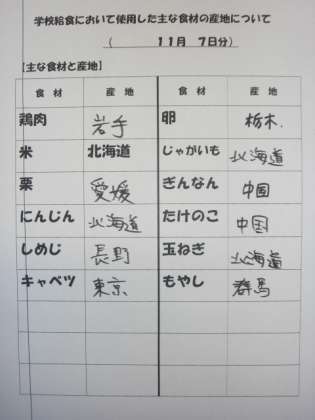 学校給食において使用した主な食材の産地について
（ 11月 7日分）
【主な食材と産地】
食材 産地 食材 産地
鶏肉 岩手 卵 栃木.
米 北海道 じゃがいも 北海道
栗 愛媛 ぎんなん 中国
にんじん 北海道 たけのこ 中国
しめじ 長野 玉ねぎ 北海道
キャベツ 東京 もやし 群馬